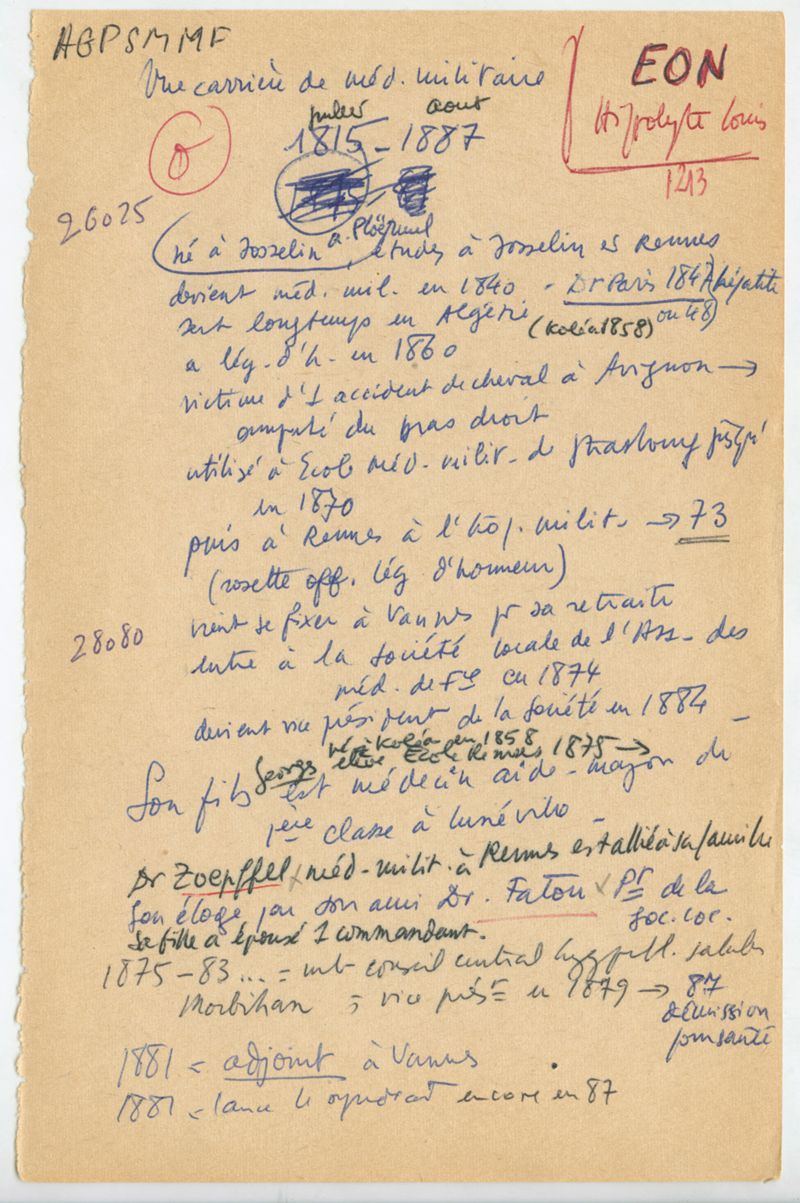 AGPSMMF
Une carrière de méd. militaire
EON
Hippolyte Louis
1213
juillet août
1815 - 1887
26025
né à Josselin a. Ploërmel, études à Josselin et Rennes
devient méd. mil. en 1840 - Dr Paris 1847 (hépatite
ou 48)
sert longtemps en Algérie (Koléa 1858)
a lég. d'h. en 1860
victime d'1 accident de cheval à Avignon →
amputé du bras droit
utilisé à Ecole méd. milit. de Strasbourg jusqu'
en 1870
puis à Rennes à l'hôp. milit. → 73
(rosette off. lég d'honneur)
vient se fixer à Vannes pr sa retraite
28080
entre à la Société locale de l'Ass. des
méd. de Fce en 1874
devient vice président de la Société en 1884 -
né à Koléa en 1858
Georges élève Ecole Rennes 1875 →
Son fils est médecin aide-major de
1ère classe à Lunéville -
Dr Zoepffel x méd-milit. à Rennes est allié à sa famille
Son éloge par son ami Dr. Faton x Pr de la
Soc. loc.
Sa fille a épousé 1 commandant.
1875-83... = mb conseil central hyg. publ. salub.
Morbihan = vice prést en 1879 → 87
démission
pour santé
1881 = adjoint à Vannes
1881 = lance le syndicat encore en 87